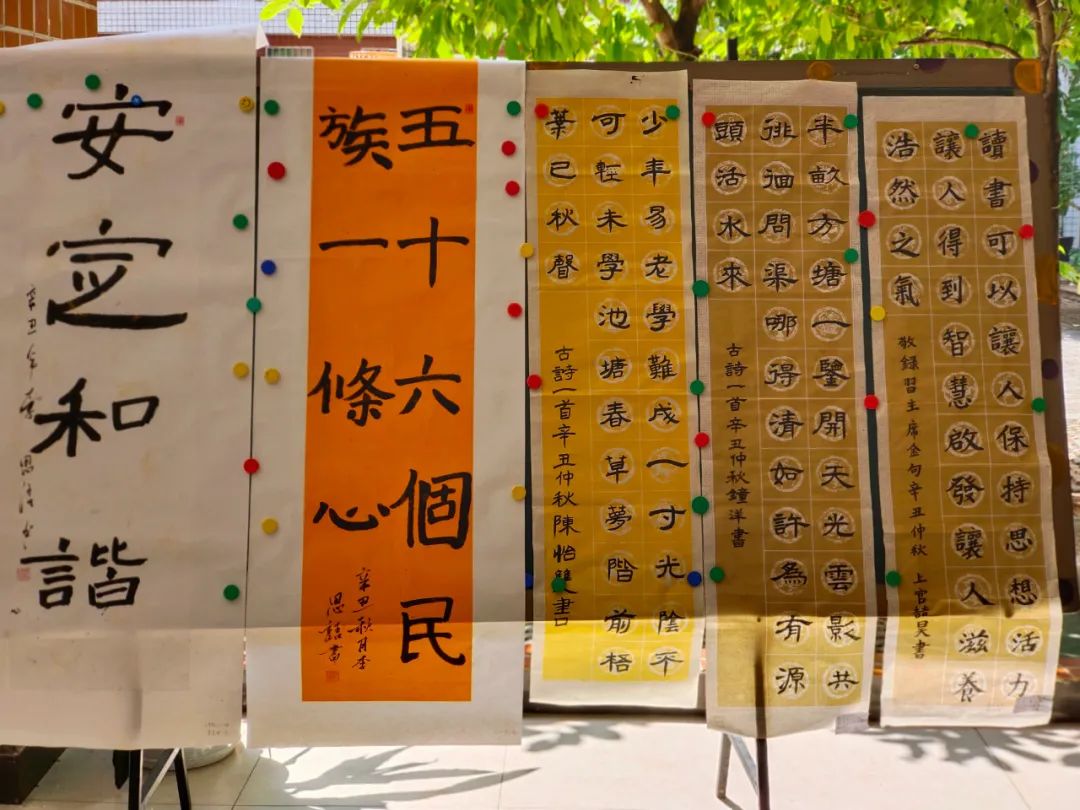 讀書可以讓人保持思想活力
讓人得到智慧啟發讓人滋養
浩然之氣
敬録習主席金句辛丑仲秋 上官喆昊書
半畝方塘一鑒開天光雲影共
徘徊問渠哪得清如許為有源
頭活水來
古詩一首辛丑仲秋鐘洋書
少年易老學難成一寸光陰不
可輕未學池塘春草夢階前梧
葉已秋聲
古詩一首辛丑仲秋陳怡雙書
五十六個民
族一條心
辛丑秋月李
思喆書
安定和諧
辛丑年